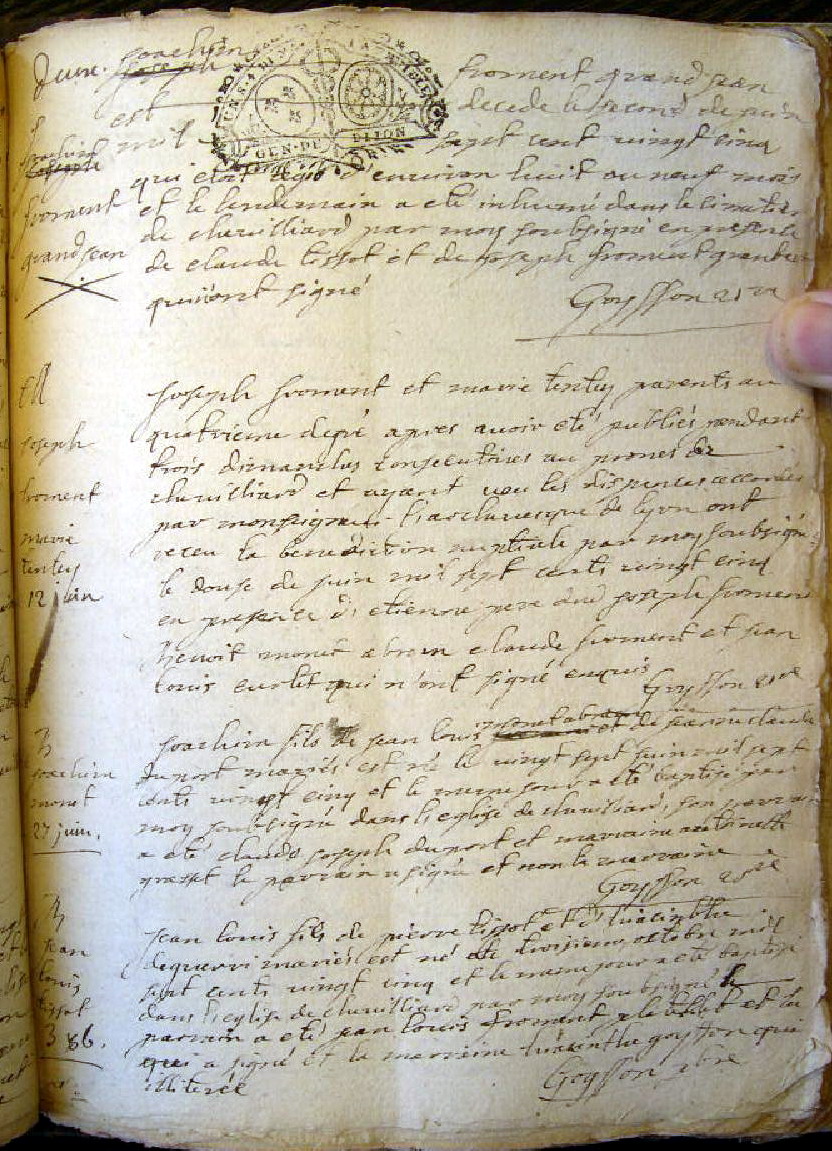 joachim
froment grand jean
est decede le second de juin
mil sept cent vingt cinq
GEN. DE DIJON
joachim
froment
grand jean
qui etoit agé d'environ huit ou neuf mois
et le lendemain a eté inhumé dans le cimetiere
de chevilliard par moy soubsigné en presence
de claude tissot et de joseph froment grand jean
qui ont signé
Goyffon
joseph
froment
marie
tenley
12 juin
joseph froment et marie tenley parents au
quatrieme degré apres avoir eté publiés pendant
trois dimanches consecutives au prones de
chevilliard et ayant veu les dispences accordées
par monseigneur l'archevesque de lyon ont
receu la benediction nuptiale par moy soubsigné
le douse de juin mil sept cents vingt cinq
en presence d'etienne pere dud joseph froment
benoit monet claude froment et jean
louis qui n'ont signé enquis
Goyffon
B
joachim
monet
27 juin.
joachim fils de jean louis et de jeanne claude
duport mariés est né le vingt sept juin mil sept
cents vingt cinq et le mesme jour a eté baptisé par
moy soubsigné dans l'eglise de chevilliard, son parrain
a eté claude joseph duport et marraine antoinette
le parrain a signé et non la marraine
Goyffon
B
jean
louis
tissot
3 8b.
jean louis fils de pierre tissot et d'hiacinthe
deguerri mariés est né le troisieme octobre mil
sept cents vingt cinq et le mesme jour a eté baptisé
dans l'eglise de chevilliard par moy soubsigné le
parrain a eté jean louis froment et la
qui a signé et la marraine hiacinthe goyffon qui
illiterée
Goyffon